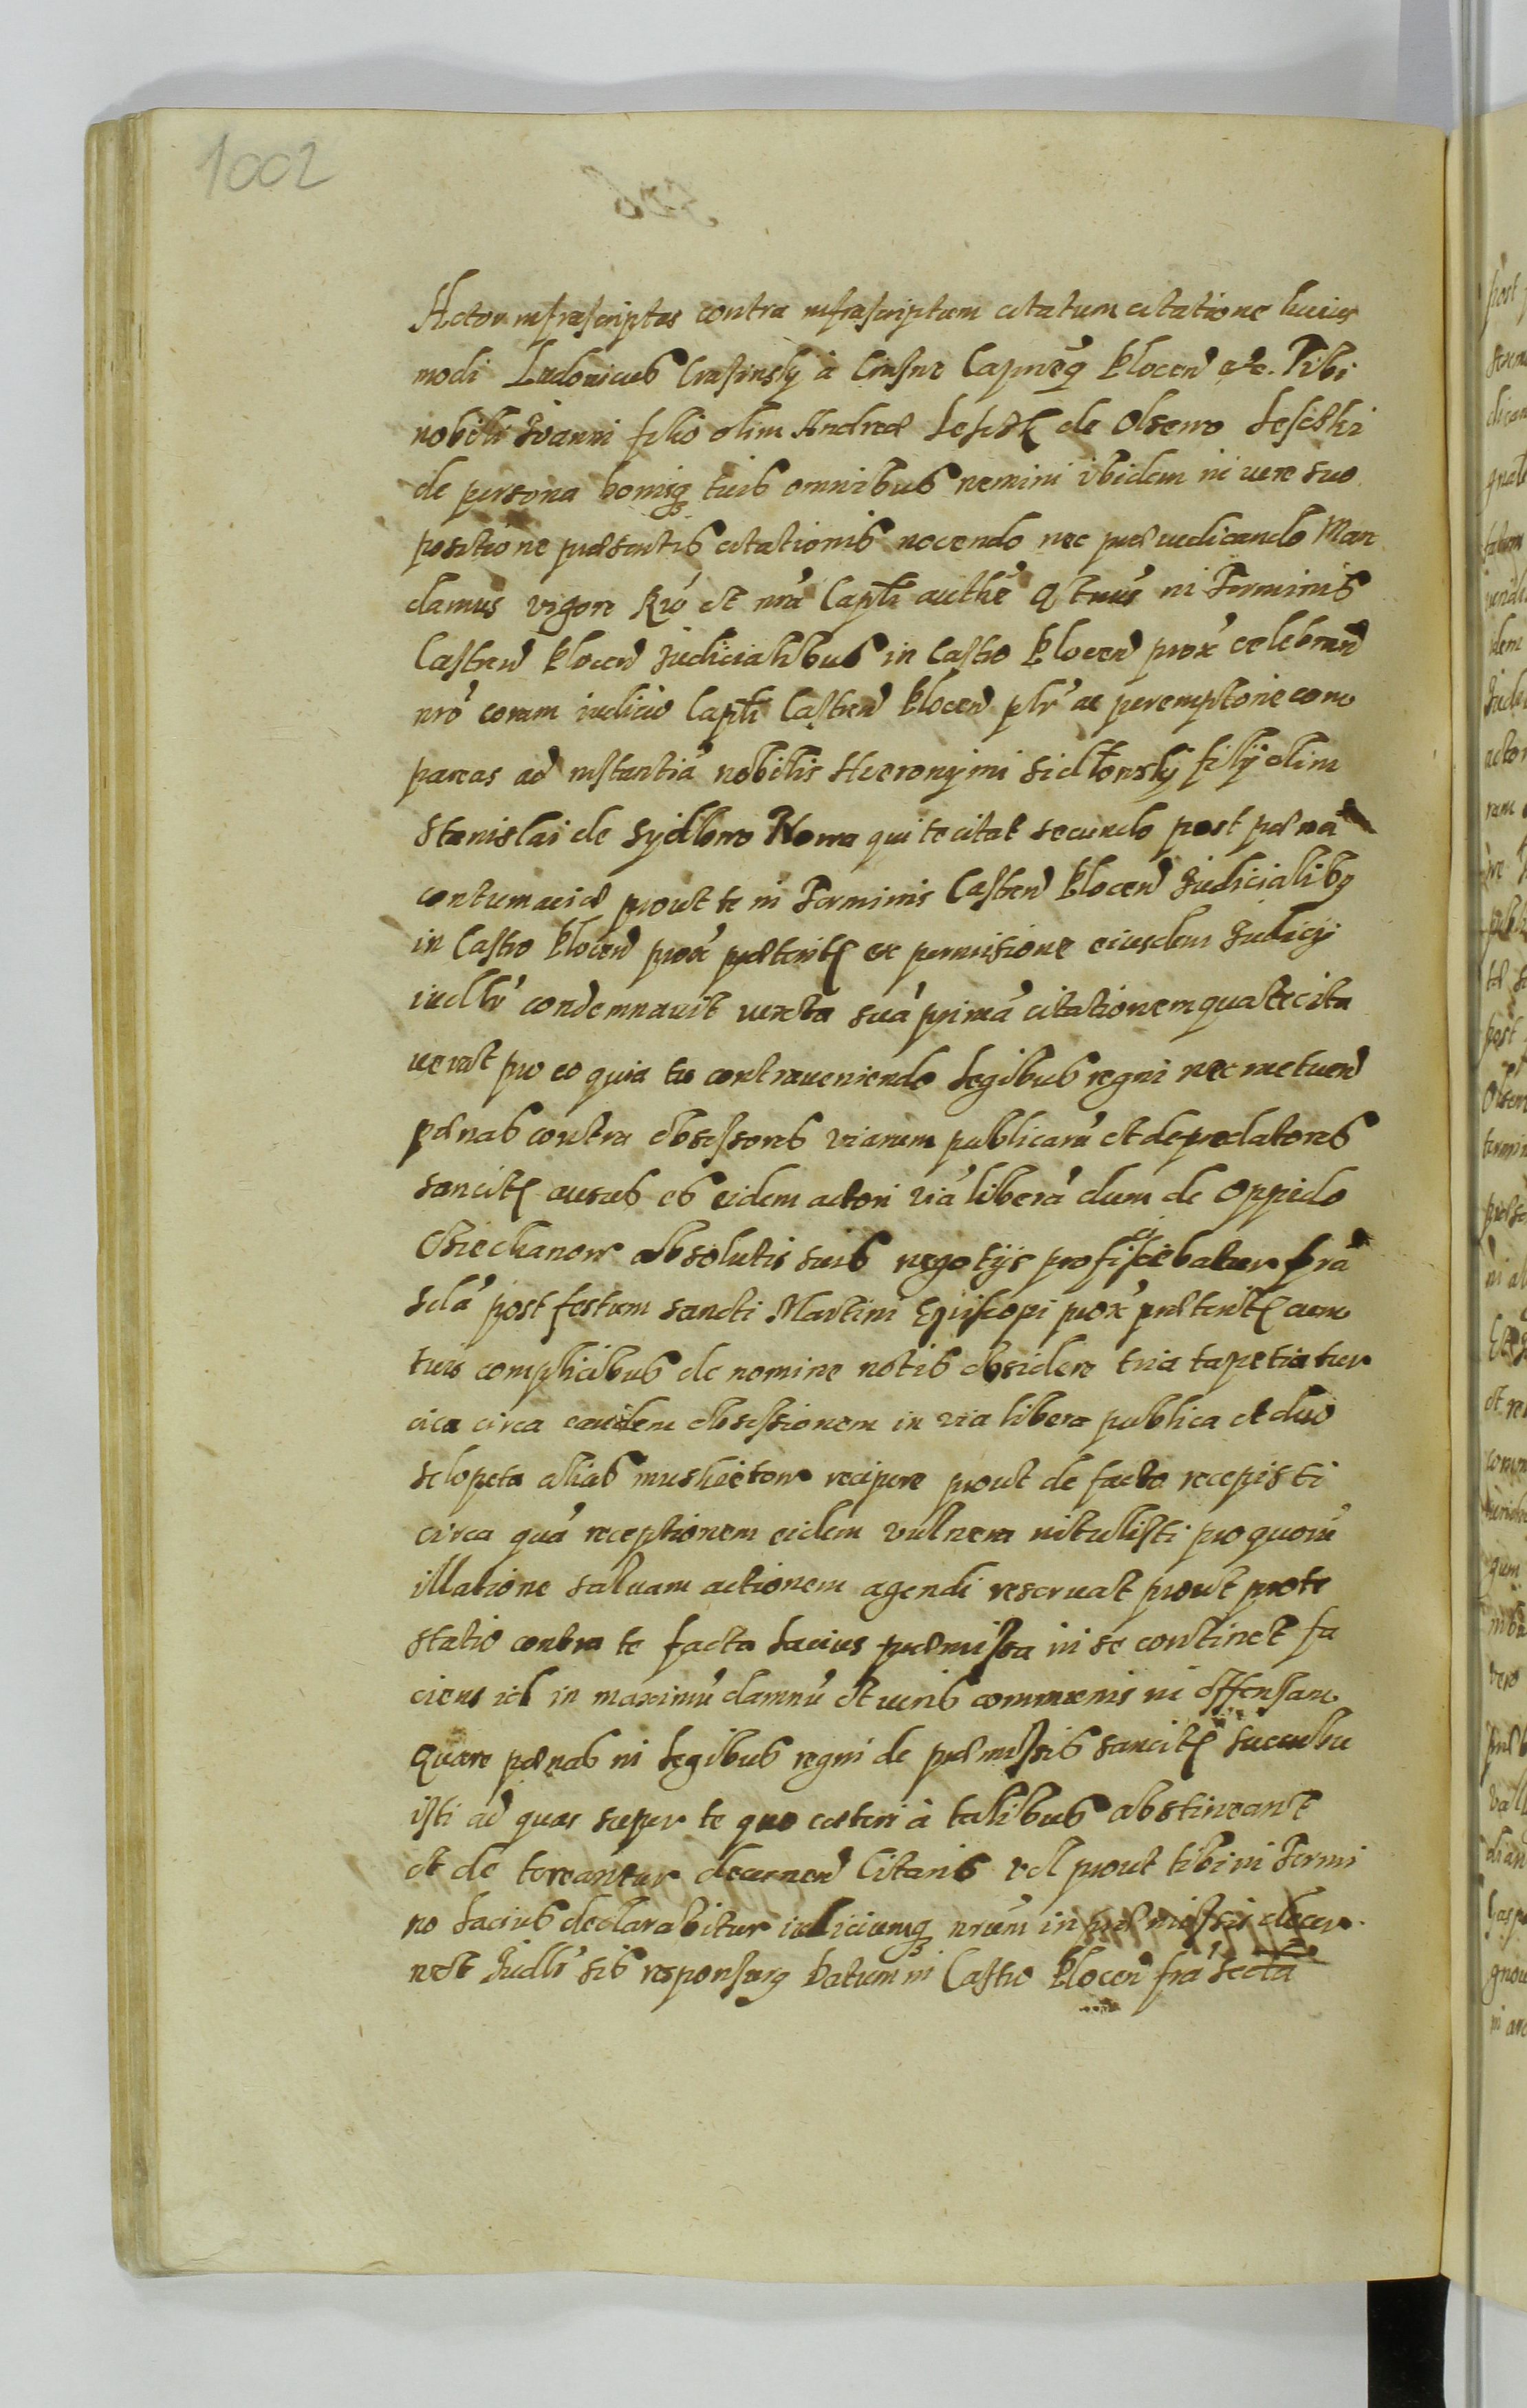 1002
Actor infrascriptus contra infrascriptum citatum citatione huius
modi Ludovicus Crasinsky à Crasne Capneq Plocen etc. Tibi
nobili Ioanni filio olim Andreæ de Olsewo
de persona bonisq tuis omnibus nemini ibidem in iure suo
positione præsentis citationis nocendo nec præiudicando Man
damus vigore Rio et nra Capli authe Qtnus in Terminis
Castren Plocen Iudicialibus in Castro Plocen prox celebran
nro coram iudicio Capli Castren Plocen plr ac peremptorie com
pareas ad instantia nobilis Hieronymi Sidlowsky filij olim
Stanislai de Sydlowo Nowa qui te citat secundo post pæna
contumaciæ prout te in Terminis Castren Plocen Iudicialibq
in Castro Plocen prox præterit ex permisione eiusdem Iudicij
iudlr condemnavit iuxta sua prima citationem qua te cita
uerat pro eo quia tu contraueniendo Legibus regni nec metuen
pænas contra obsessores viarum publicaru et depredatores
sancit ausus es eidem actori via libera dum de Oppido
Chiechanow absolutis suis negotijs proficiscebatur fra
scda post festum sancti Martini Episcopi prox præterit cum
tuis complicibus de nomine notis obsidere tria tapetia tur
cica circa eandem obsessionem in via libera publica et duo
sclopeta alias muskietow recipere prout de facto recepisti
circa qua receptionem eidem vulnera intulisti pro quoru
illatione saluam actionem agendi reseruat prout prote
statio contra te facta Lacius præmissa in se continet fa
ciens id in maximu damnu et iuris communis in offensam
Quare pænas in Legibus regni de præmissis sancit succubu
isti ad quas super te quo cæteri à talibus abstineant
et de tereantur decernen Citaris et prout tibi in Termi
no Lacius declarabitur iudiciumq nrum in præmissis decer
net Iudlr sis responsurq Datum in Castro Plocen fra secta